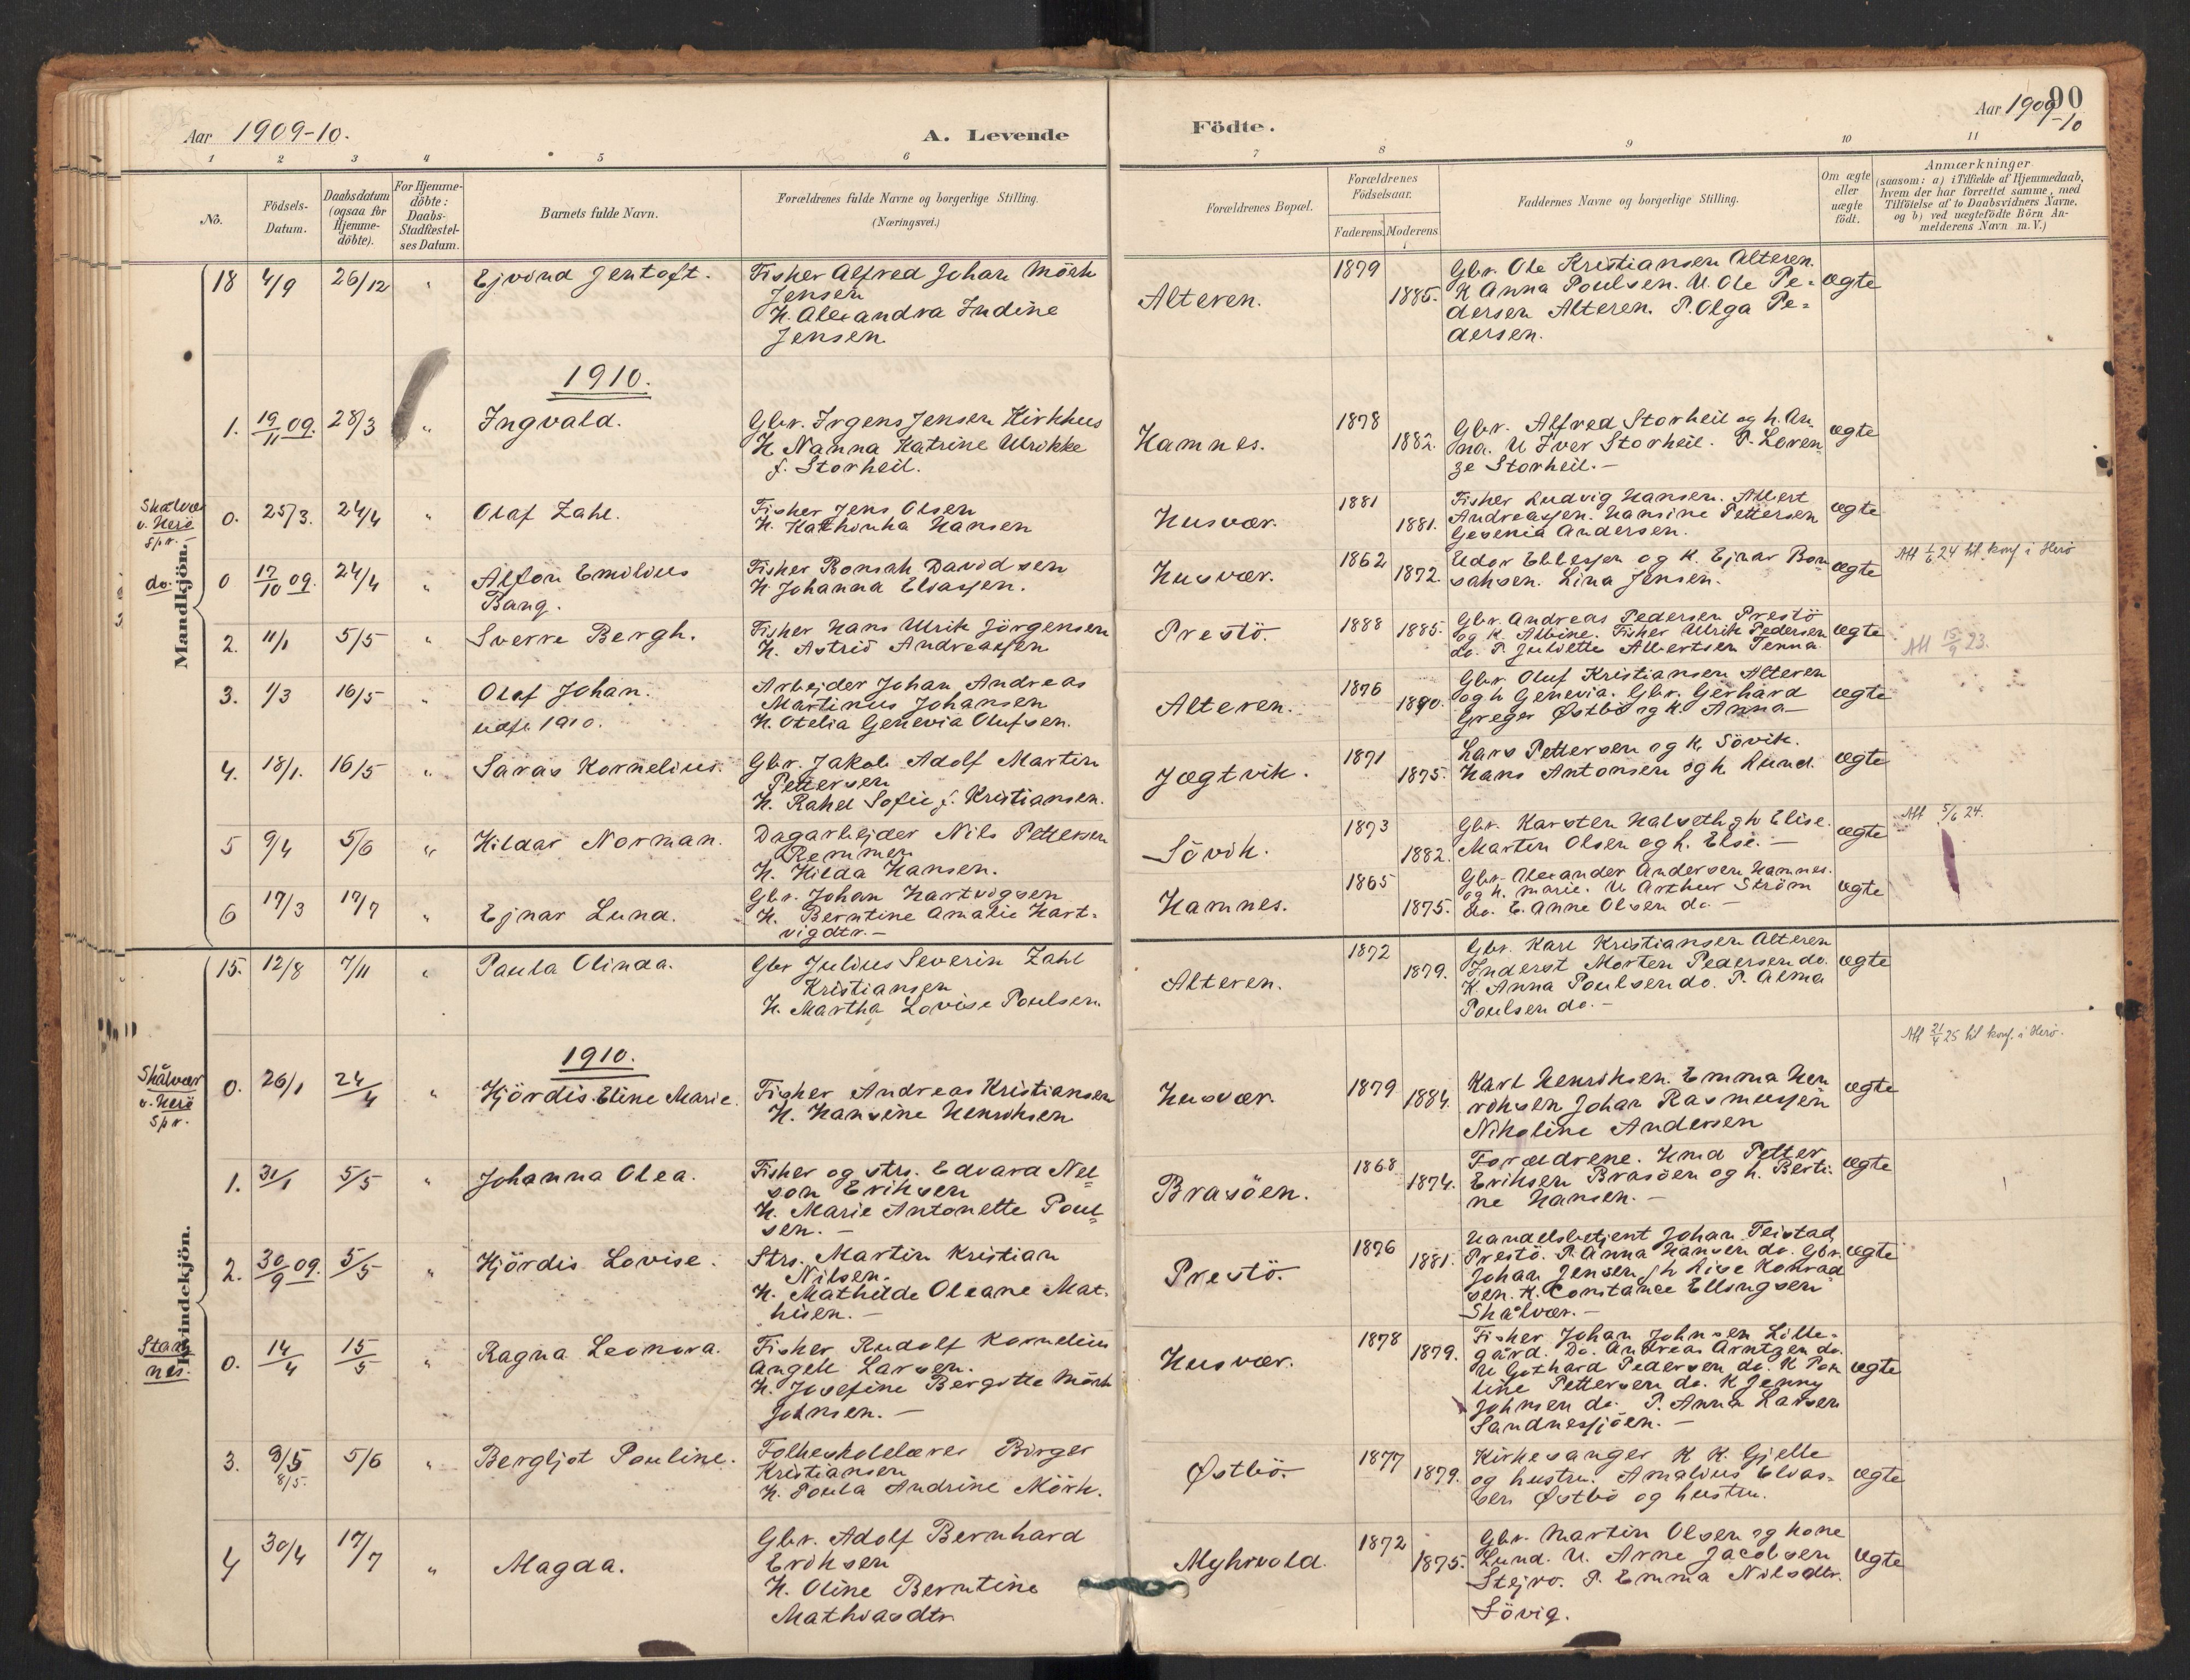 Aar 1909-10.
A. Levende
Födte.
Aar 1909-10
90
1 2 3 4 5 6 7 8 9 10 11
No.
Födsels-Datum.
Daabsdatum (ogsaa for Hjemme-döbte).
For Hjemme-döbte: Daabs-Stadfæstel-ses Datum.
Barnets fulde Navn.
Forældrenes fulde Navne og borgerlige Stilling.
(Næringsvei.)
Forældrenes Bopæl.
Forældrenes Födselsaar.
Faderens. Moderens.
Faddernes Navne og borgerlige Stilling.
Om ægte eller uægte födt.
Anmærkninger
(saasom: a) i Tilfælde af Hjemmedaab,
hvem der har forrettet samme, med
Tilföielse af to Daabsvidners Navne,
og b) ved uægtefödte Börn An-
melderens Navn m. V.)
Mandkjön.
18 4/9 26/12 " Ejvind Jentoft.
Fisker Alfred Johan Mörk
Jensen
H. Alexandra Indine
Jensen
Alteren.
1879
1885.
Gbr. Ole Kristiansen Alteren.
K Anna Poulsen. U. Ole Pe-
dersen Alteren. P. Olga Pe-
dersen.
ægte
1910.
1. 19/11 09. 28/3 " Ingvald.
Gbr. Irgens Jensen Kirkhus
H. Nanna Katrine Ulrikke
f. Storheil.
Hamnes.
1878
1882.
Gbr. Alfred Storheil og h. An
na. U Iver Storheil. P. Loren-
ze Storheil.-
ægte
Skålvær
v. Herö
Spr.-
0. 25/3. 24/4 " Olaf Zahl.
Fisker Jens Olsen
H. Kathinka Hansen
Husvær.
1881
1881.
Fisker Ludvig Hansen. Albert
Andreassen. Hansine Pettersen
Gesenia Andersen.
ægte
do.
0 17/10 09. 24/4 " Alfon Emilius
Bang.
Fisker Bonsak Davidsen
H Johanna Eliassen.
Husvær.
1862
1872.
Edor Ebbesen og K. Ejnar Bon-
saksen. Lina Jensen.
ægte
Att 1/6 24 til konf. i Herö
2. 11/1 5/5 " Sverre Bergh.
Fisker Hans Ulrik Jörgensen
H. Astrid Andreassen
Prestö.
1888 1885.
Gbr. Andreas Pedersen Prestö
og K. Albine. Fisker Ulrik Pedersen
do. P. Juliette Albertsen Tenna
ægte
Att 15/9 23.
3. 1/3 16/5 " Olaf Johan.
udfl. 1910.
Arbejder Johan Andreas
Martinus Johansen
H. Otelia Genevia Olufsen.
Alteren.
1876
1890.
Gbr Oluf Kristiansen Alteren
og h Genevia. Gbr. Gerhard
Greger Østbö og K. Anna-
ægte
4. 18/1. 16/5 " Saras Kornelius.
Gbr. Jakob Adolf Martin
Pettersen
H. Rahel Sofie f. Kristiansen.
Jægtvik.
1871
1875.
Lars Pettersen og K, Sövik.
Hans Antonsen og h. Lund.
ægte
5 9/4 5/6 " Hildar Norman.
Dagarbejder Nils Pettersen
Remmen
H. Hilda Hansen.
Sövik.
1873
1882.
Gbr. Karsten Halseth gh Elise.
Martin Olsen og h. Else. -
ægte
Att 5/6 24.
6 17/3 17/7 " Ejnar Lund.
Gbr. Johan Hartvigsen
H. Berntine Amalie Hart-
vigdtr.-
Hamnes.
1865
1875.
Gbr. Alexander Andersen Hamnes.
og h. Marie. U Arthur Ström
do. E. Anne Olsen do -
ægte
Kvindekjön.
15. 12/8 7/11 " Paula Olinda.
Gbr Julius Severin Zahl
Kristiansen
H. Martha Lovise Poulsen.
Alteren.
1872
1879.
Gbr. Karl Kristiansen Alteren
Inderst Morten Pedersen do.
K. Anna Poulsen do. P. Alma
Poulsen do. -
ægte
1910.
Skålvær
v. Herö
Spr.
0. 26/1 24/4 " Hjördis Eline Marie.
Fisker Andreas Kristiansen
H. Hansine Henriksen
Husvær.
1879 1884.
Karl Henriksen. Emma Hen
riksen Johan Rasmussen
Nikoline Andersen
ægte
Att 21/4 25 til konf. i Herö.
1. 31/1 5/5 " Johanna Olea.
Fisker og strs. Edvard Nel=
son Eriksen
H. Marie Antonette Poul=
sen. -
Brasöen.
1868
1874.
Forældrene. Hmd Petter
Eriksen Brasöen og h. Berti-
ne Hansen. -
ægte
2. 30/9 09. 5/5 " Hjördis Lovise.
Strs. Martin Kristian
Nilsen.
H. Mathilde Oleane Mat-
hisen. -
Prestö.
1876
1881.
Handelsbetjent Johan Teistad
Prestö. P. Anna Hansen do. Gbr.
Johan Jensen gh Lise Konrad
sen. K. Constance Ellingsen
Skålvær. -
ægte
Stam
nes.
0. 14/4 15/5 " Ragna Leonora.
Fisker Rudolf Kornelius
Angell Larsen.
H. Josefine Bergitte Mörk
Johnsen. -
Husvær.
1878
1879.
Fisker Johan Johnsen Lille-
gård. Do. Andreas Arntzen do.
U Gothard Pedersen do. K Pau
line Pettersen do. K Jenny
Johnsen do. P. Anna Larsen
Sandnessjöen. -
ægte
3. 9/5 8/5. 5/6 " Bergljot Pouline.
Folkeskolelærer Birger
Kristiansen
H. Poula Andrine Mörk.
Østbö.
1877
1879.
Kirkesanger K K. Gjelle
og hustru. Amalius Elias-
sen Østbö og hustru.
ægte
4 30/4 17/7 " Magda.
Gbr. Adolf Bernhard
Eriksen
H. Oline Berntine
Mathiasdtr
Myhrvold.
1872
1875.
Gbr. Martin Olsen og kone
Lund. U. Arne Jacobsen
Stejro. P. Emma Nilsdtr.
Sövig.
ægte